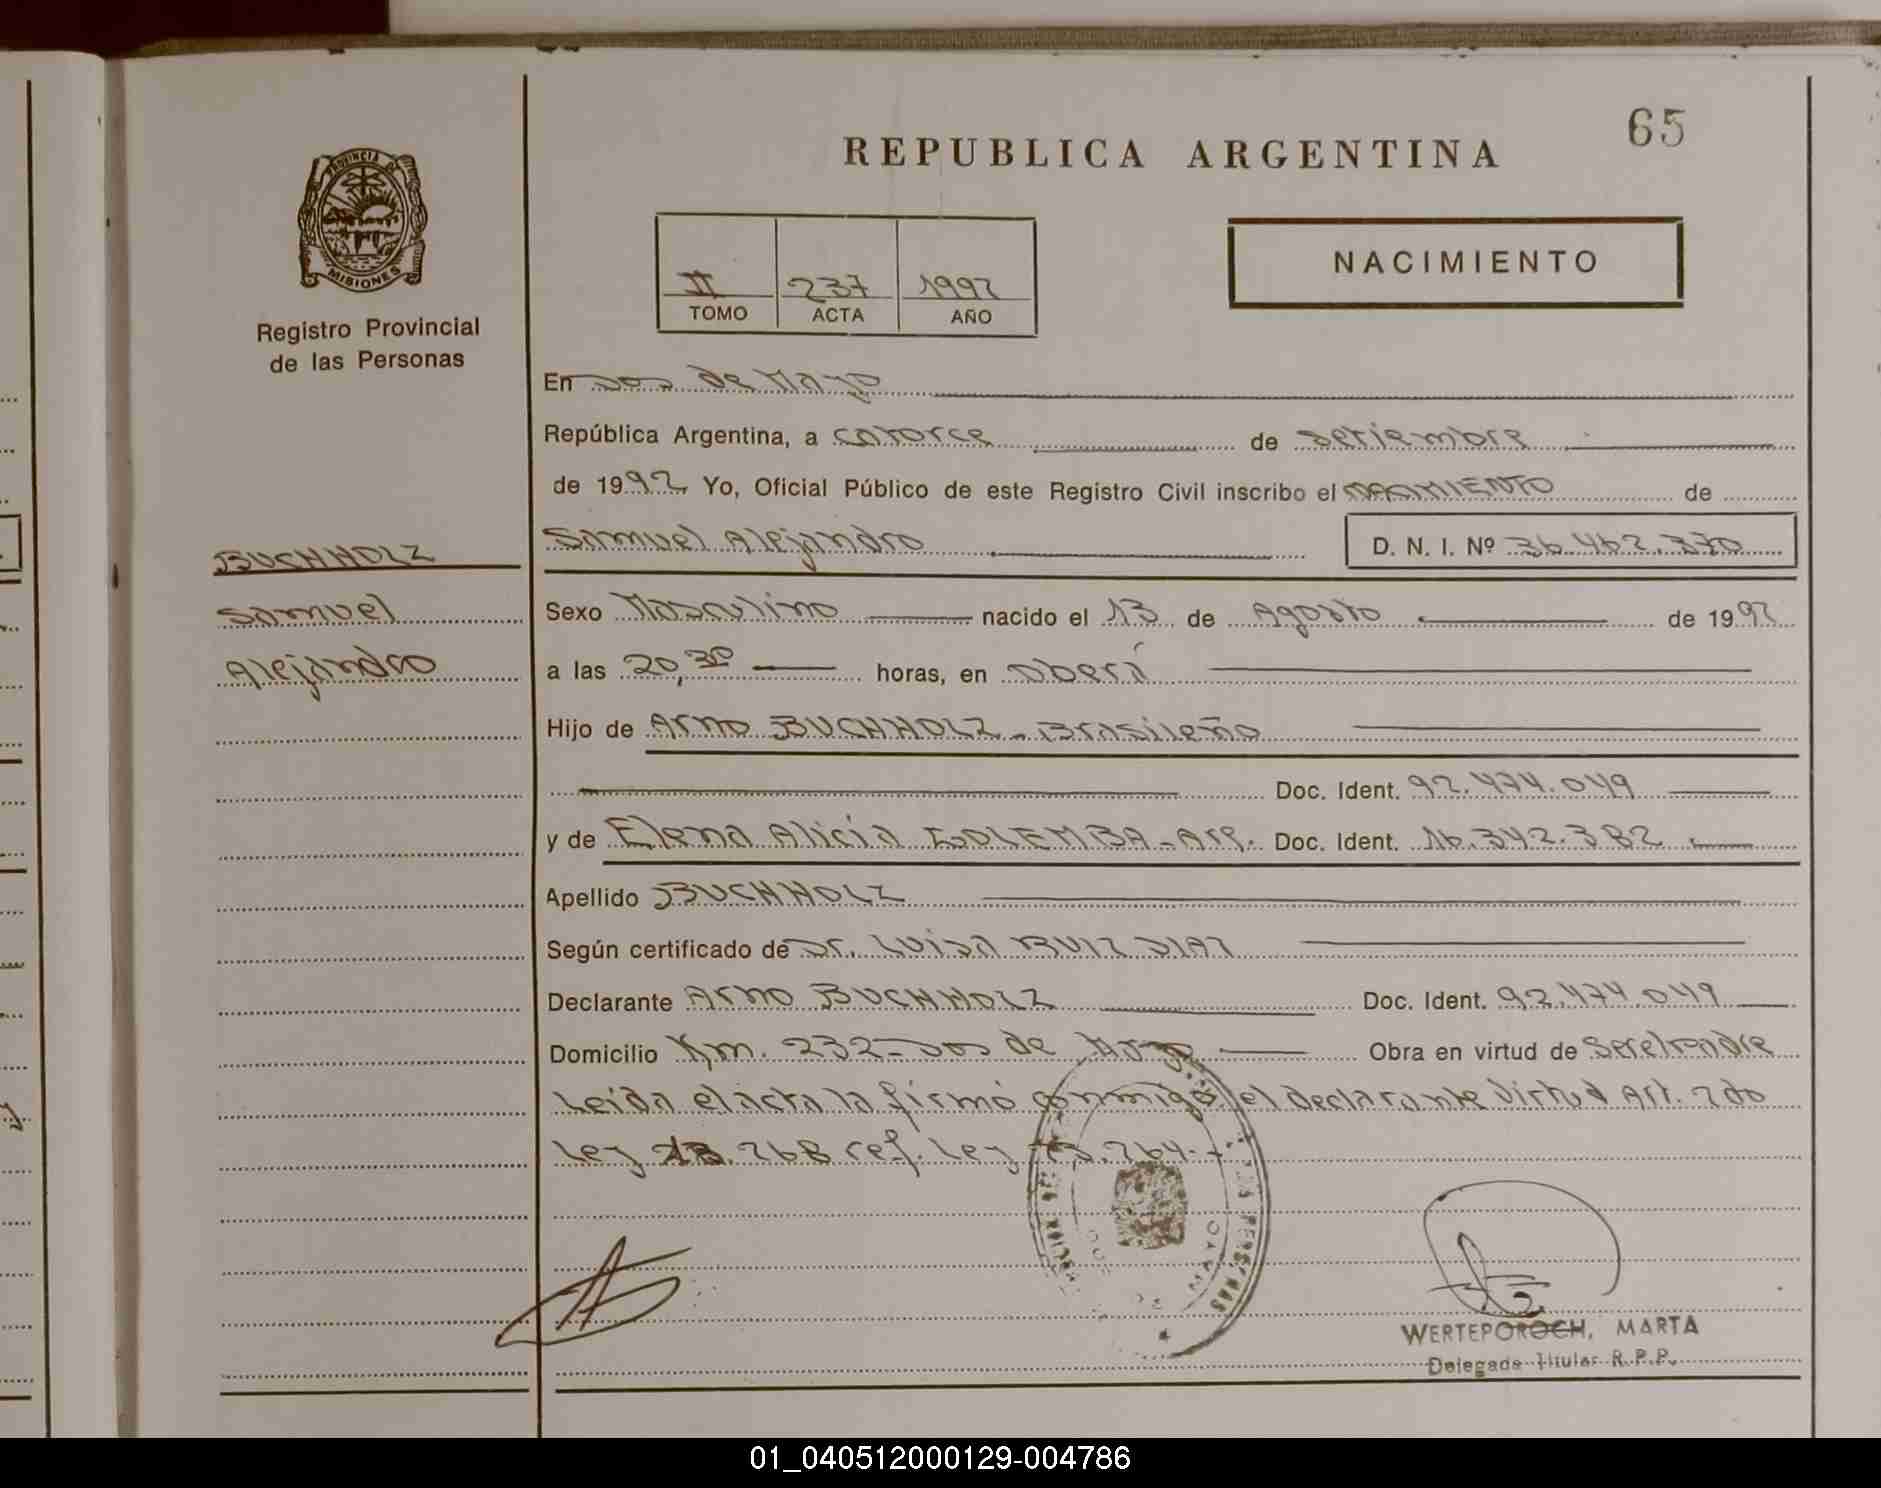 65
REPUBLICA ARGENTINA
PROVINCIA DE
MISIONES
Registro Provincial
de las Personas
II 237 1992
TOMO ACTA AÑO
NACIMIENTO
En Dos de Mayo
República Argentina, a catorce de setiembre
de 1992, Yo, Oficial Público de este Registro Civil inscribo el NACIMIENTO de
Samuel Alejandro D. N. I. Nº 36.462.370
BUCHHOLZ
Samuel
Alejandro
Sexo Masculino nacido el 13 de Agosto de 1992
a las 20,30 horas, en Oberá
Hijo de Arno BUCHHOLZ - Brasileño
Doc. Ident. 92.474.049
y de Elena Alicia GOLEMBA - Arg. Doc. Ident. 16.342.382
Apellido BUCHHOLZ
Según certificado de Dr. Luisa RUIZ DIAZ
Declarante Arno BUCHHOLZ Doc. Ident. 92.474.049
Domicilio Km. 232 - Dos de Mayo Obra en virtud de ser el padre
Leída el acta la firmó conmigo el declarante Virtud Art. 2do
Ley 23.268 ref. Ley
WERTEPOROCH, MARTA
Delegada Titular R.P.P.
01_040512000129-004786